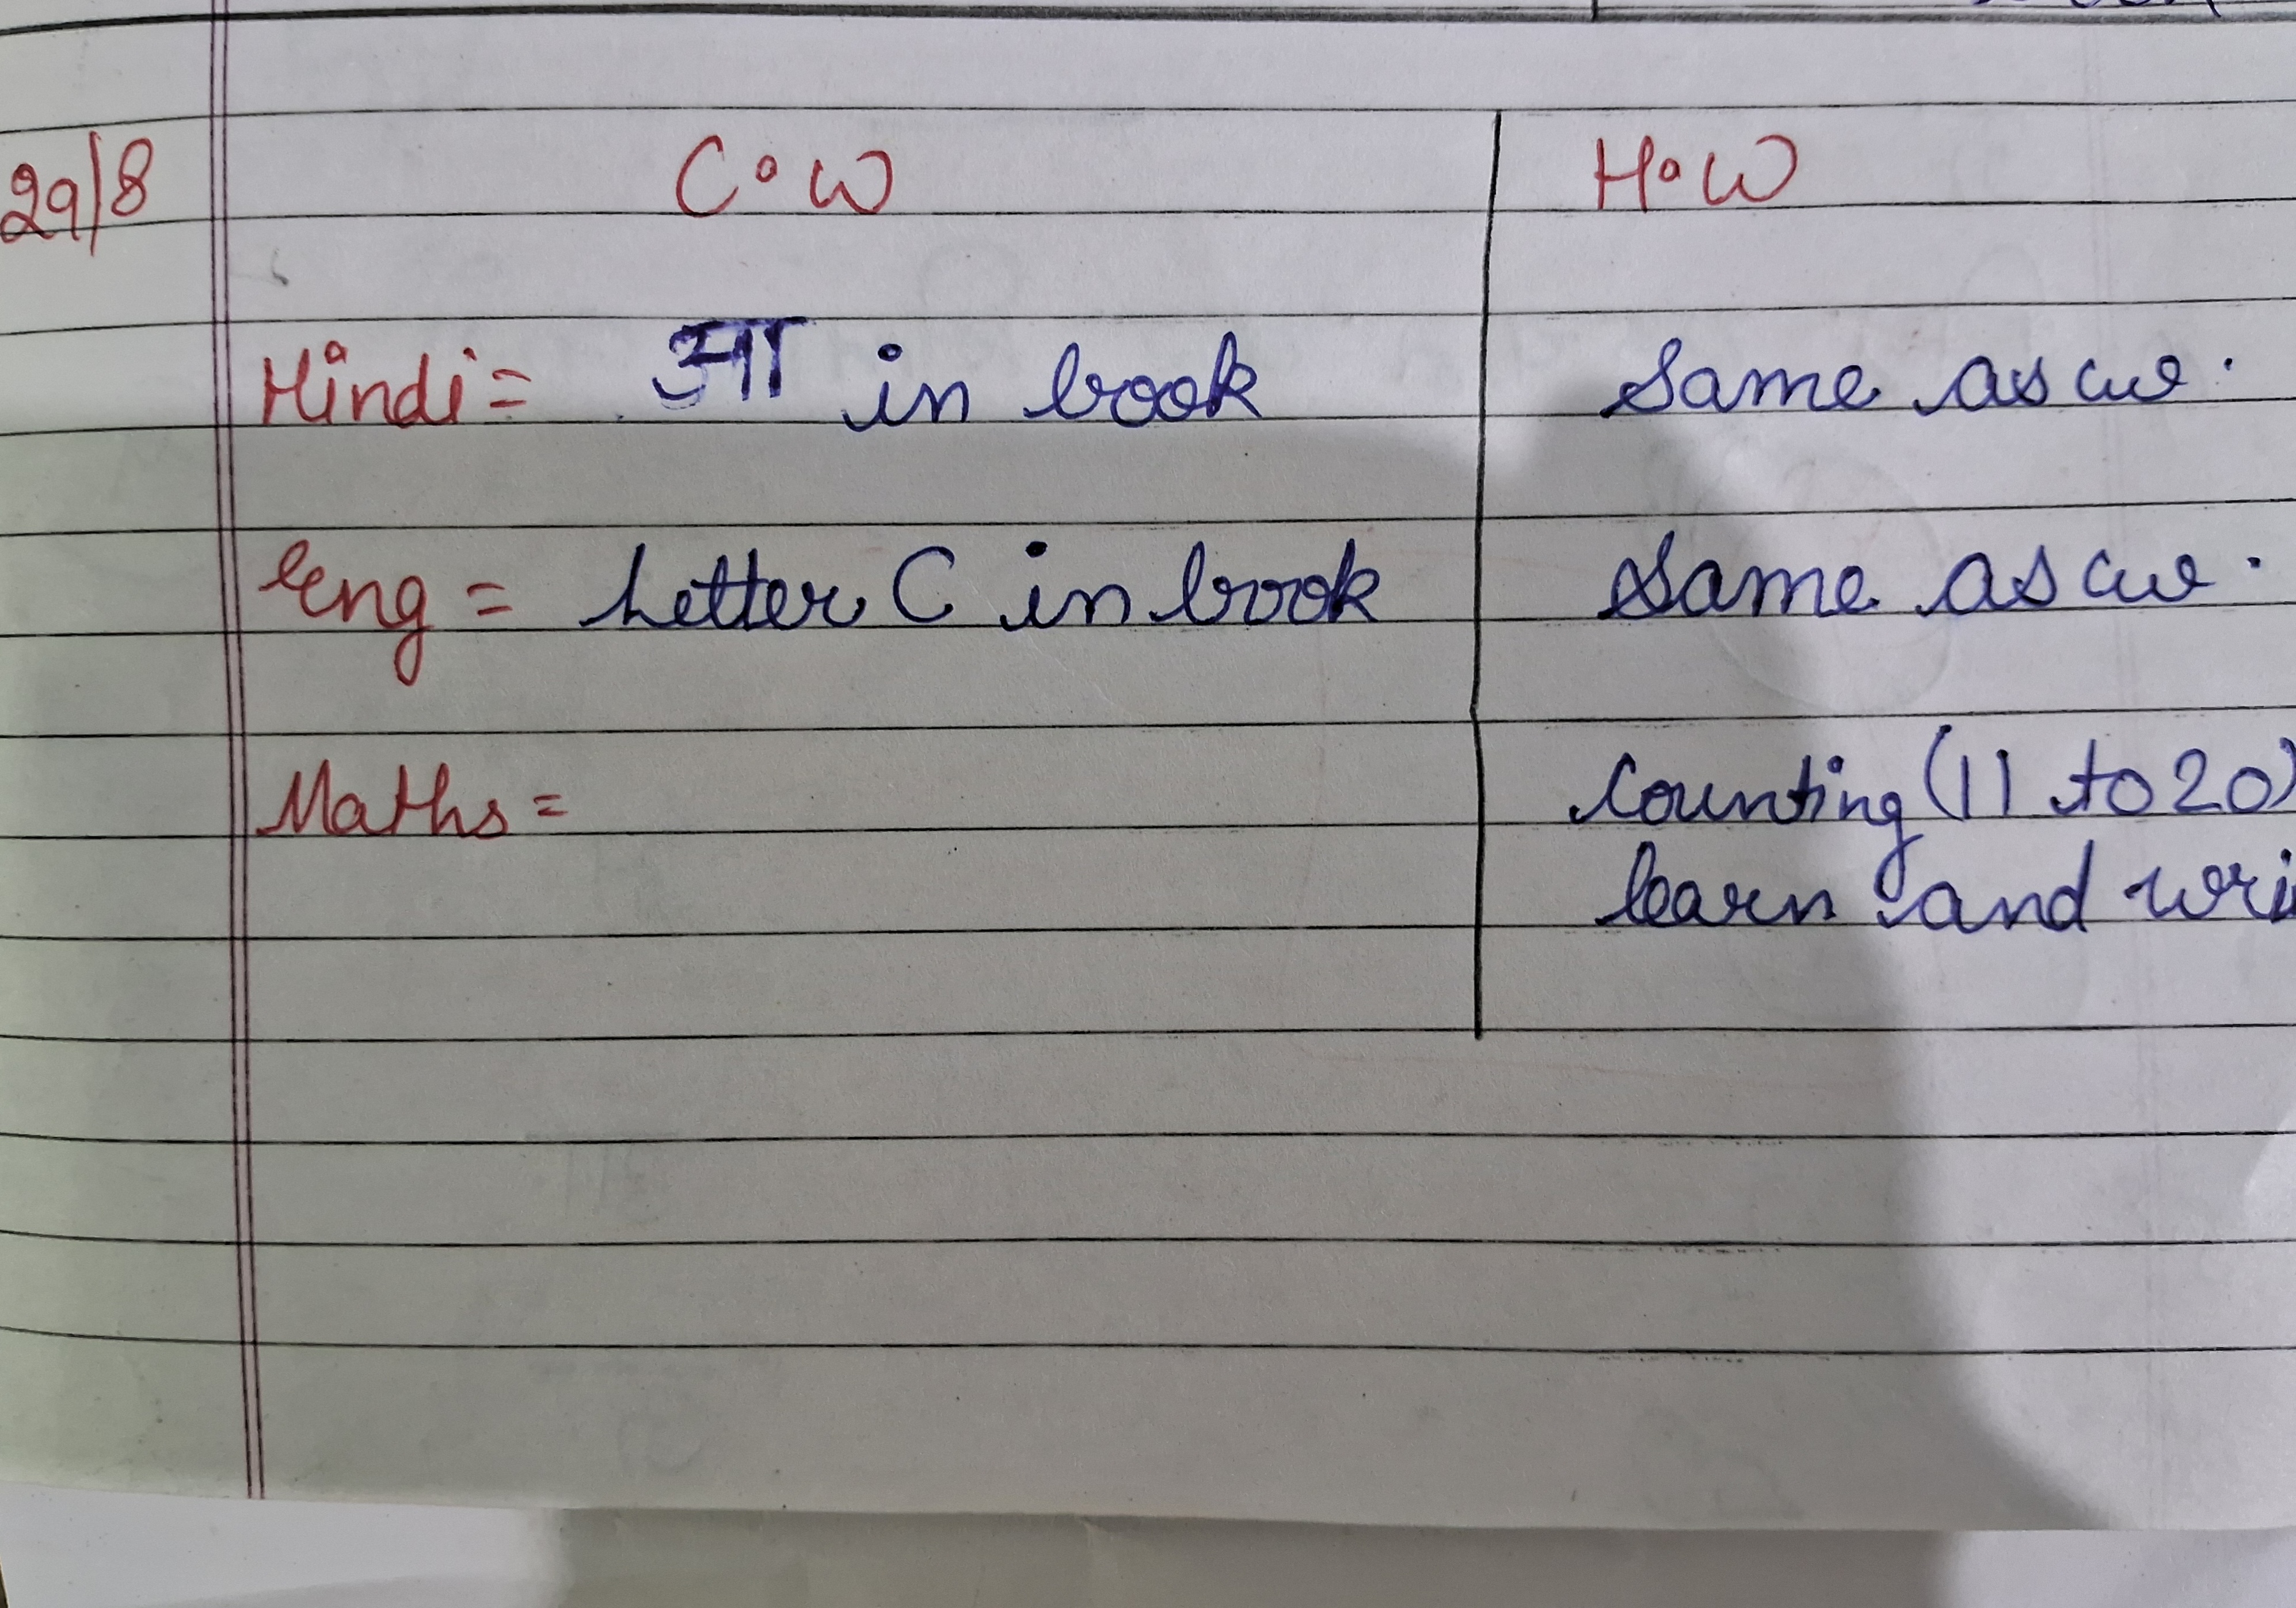 29/8 C.W H.W
Hindi = आ in book Same as cw.
Eng = Letter C in book Same as cw.
Maths = Counting (11 to 20)
learn and wri